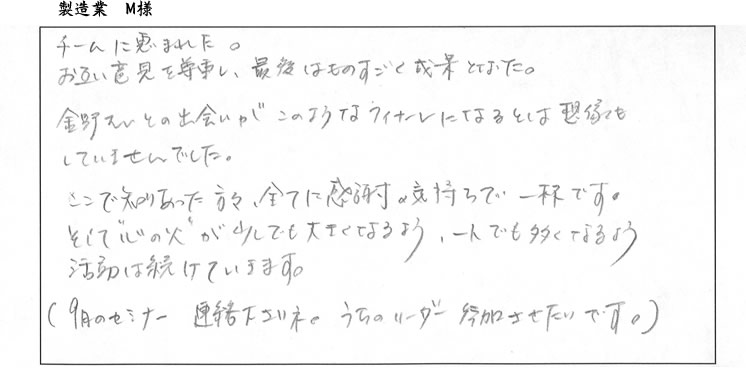 製造業　M様
チームに恵まれた。
お互い意見を尊重し、最後はものすごく成果となった。
金野さんとの出会いがこのようなフィナーレになるとは想像も
していませんでした。
ここで知りあった方々、全てに感謝の気持ちで一杯です。
そして"心の火"が少しでも大きくなるよう、一人でも多くなるよう
活動は続けていきます。
(9月のセミナー 連絡下さいネ。うちのリーダー参加させたいです。)